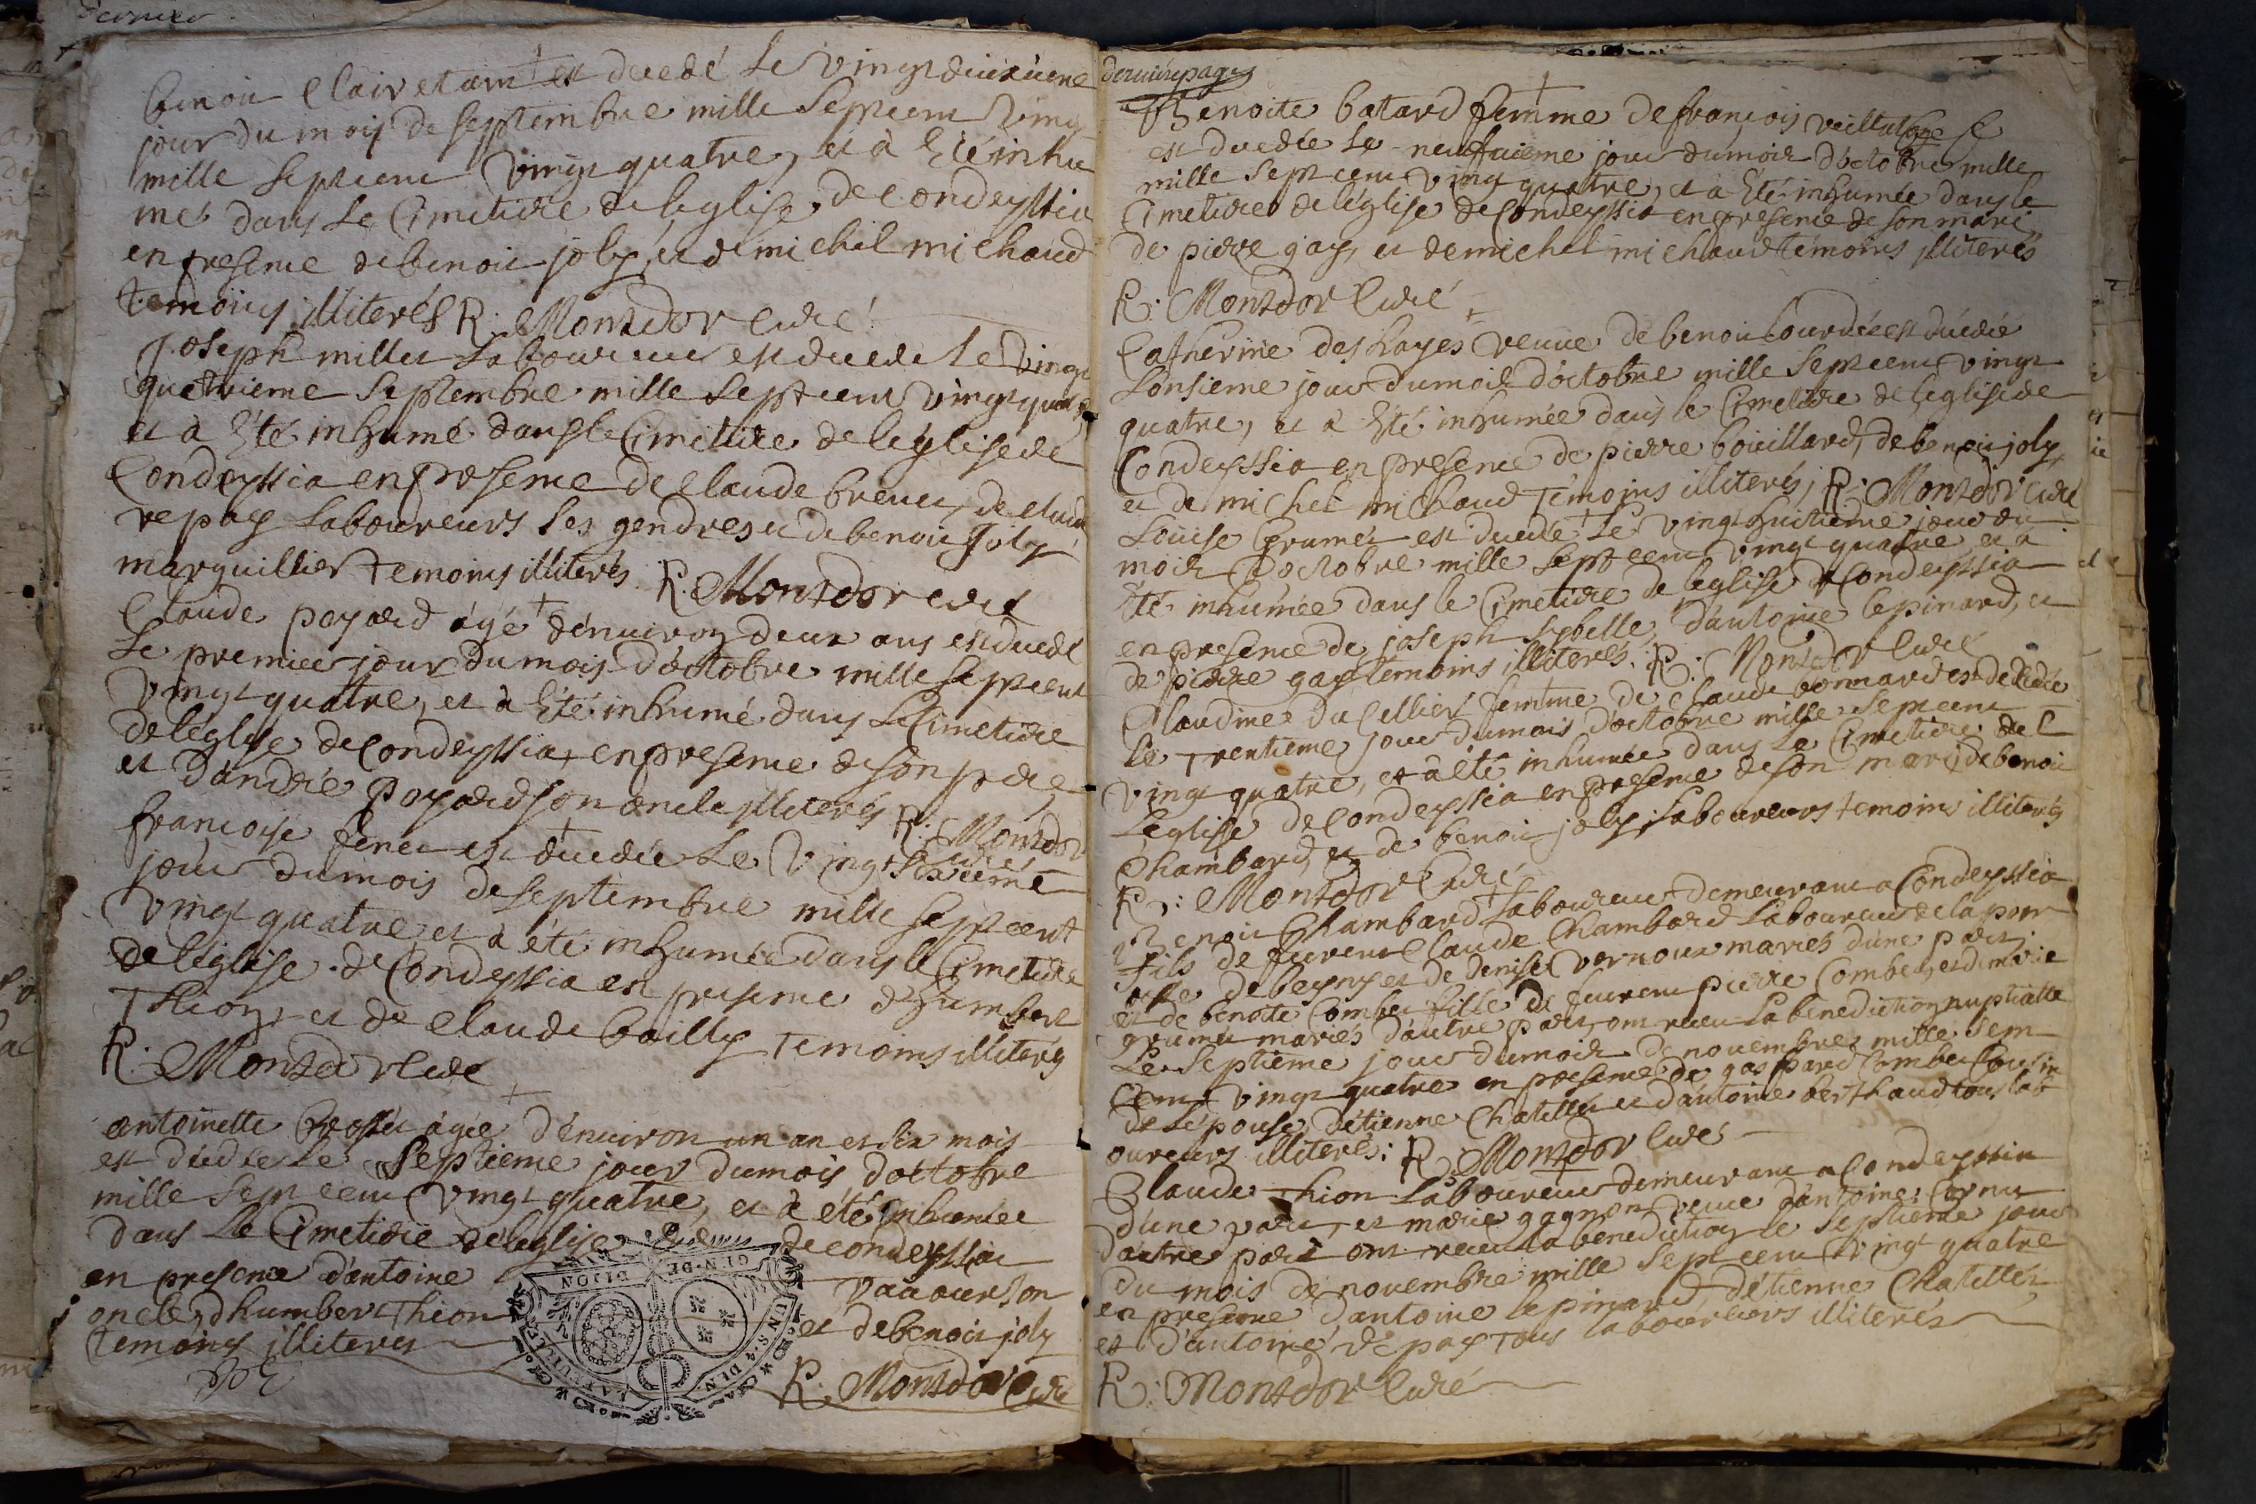 benoit Clairetain est decedé Le vingt deuxieme
jour du mois de septembre mille sept cent vingt
mille sept cent vingt quatre, et à Eté inhu
mé dans Le Cimetiere de leglise de Condeyssia
en presence de benoit joly, et de michel michaud
temoins illiterés R. Montdor Curé
Joseph millet Laboureur est decedé le vingt
quatrieme septembre mille sept cent vingt quatre
et à Eté inhumé dans le Cimetiere de leglise de
Condeyssia en presence de Claude brevet, de claude
repay Laboureurs ses gendres et de benoit Joly
marguillier temoins illiterés R. Montdor curé
Claude poyard agé d'environ deux ans est decedé
Le premier jour du mois d'octobre mille sept cent
vingt quatre, et à Eté inhumé dans Le Cimetiere
de léglise de Condeyssia, en presence de son pere
et d'andré poyard son oncle illiterés R. Montdor
curé
francoise fenet est decedée Le vingt sixieme
jour du mois de septembre mille sept cent
vingt quatre et à été inhumée dans le Cimetiere
de léglise de Condeyssia en presence d'humbert
Thion et de Claude bailly temoins illiterés
R. Montdor Curé
antoinette agée d'environ un an et six mois
est decedée Le septieme jour du mois d'octobre
mille sept cent vingt quatre, et à été inhumée
dans Le Cimetiere de leglise de condeyssia
en presence d'antoine vaucourson
oncle, d'humbert Thion et de benoit joly
temoins illiterés
R. Montdor Curé
GEN. DE DIJON
derniere page
Benoite batard femme de francois
est decedée Le neufvieme jour du mois d'octobre mille
mille sept cent vingt quatre, et à Eté inhumée dans le
Cimetiere de léglise de Condeyssia en presence de son mari,
de pierre gay, et de michel michaud temoins illiterés
R. Montdor Curé
Catherine des hayes veuve de benoit est decedée
Lonsieme jour du mois d'octobre mille sept cent vingt
quatre, et à Eté inhumée dans le Cimetiere de leglise de
Condeyssia en presence de pierre bouillard, de benoit joly,
et de michel michaud temoins illiterés, R. Montdor Curé
Louise Grumet est decedée Le vingt huitieme jour du
mois d'octobre mille sept cent vingt quatre et à
Eté inhumée dans le Cimetiere de leglise de Condeyssia
en presence de joseph sybelle, d'antoine lepinard, et
de pierre gay temoins illiterés. R. Montdor Curé
Claudine du Cellier femme de Claude bonnard est decedée
Le trentieme jour du mois d'octobre mille sept cent
vingt quatre, et à été inhumée dans Le Cimetiere de l
Leglise de Condeyssia en presence de son mari, de benoit
Chambard, et de benoit joly Laboureurs temoins illiterés
R. Montdor Curé
Benoit Chambard Laboureur demeurant a Condeyssia
fils de feu vent Claude Chambard Laboureur de la paro
isse de beyny et de Denise vernoux mariés d'une part
et de benoite Combet fille de feu vent pierre Combet, et de marie
grumet mariés d'autre part, ont recu La benediction nuptialle
Le septieme jour du mois de novembre mille sept
Cent vingt quatre en presence de gaspard Combet Cousin
de Lépouse, d'étienne Chatellet et d'antoine berthaud tous lab
oureurs illiterés; R. Montdor Curé
Claude Thion Laboureur demeurant a Condeyssia
d'une part, et marie gagnon veuve d'antoine Cornu
d'autre part ont recu La benediction le septieme jour
du mois de novembre mille sept cent vingt quatre
en presence d'antoine lepinard d'étienne Chatellet
et d'antoine repay tous laboureurs illiterés
R. Montdor Curé